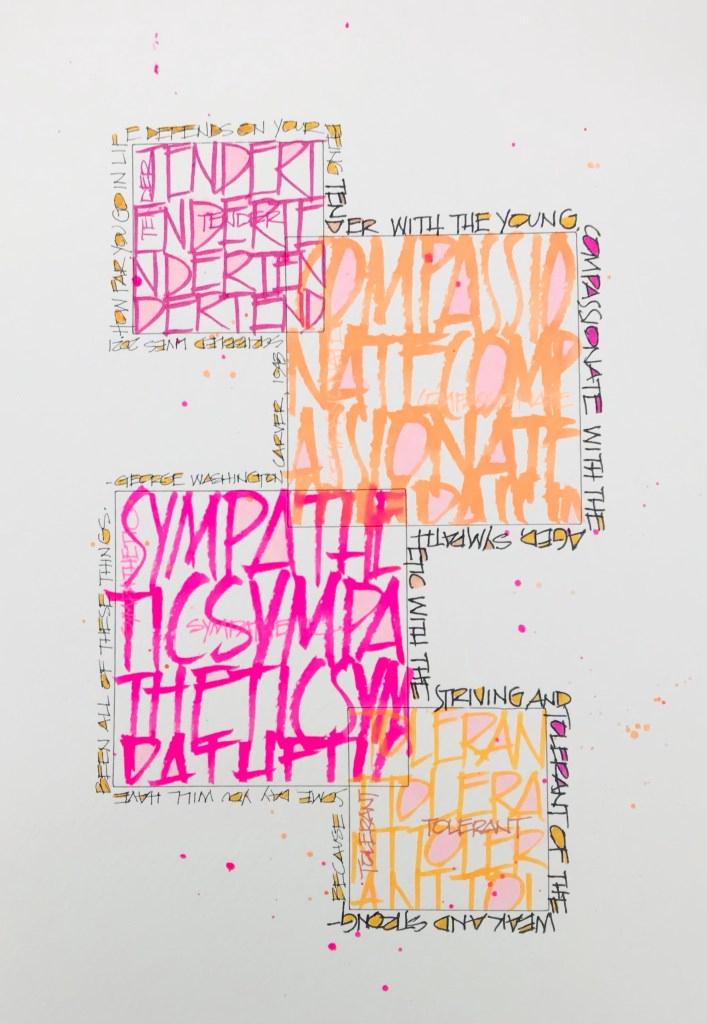 HOW FAR YOU GO IN LIFE
DEPENDS ON YOUR
BEING TEN
DER WITH THE YOUNG,
COMPASSIONATE WITH THE
AGED, SYMPATH
ETIC WITH THE
STRIVING AND
TOLERANT OF THE
WEAK AND STRONG-
BECAUSE
SOME DAY YOU WILL HAVE
BEEN ALL OF THESE THINGS.
-GEORGE WASHINGTON
CARVER,
2021
TENDERT
ENDERTE
NDERTEN
DERTEND
TENDER
TENDER
COMPASSIO
NATECOMP
ASSIONATE
COMPASSIONATE
SYMPATHE
TICSYMPA
THETICSYM
SYMPATHETIC
SYMPATHETIC
TOLERAN
TTOLERA
NTTOLER
ANTTOL
TOLERANT
TOLERANT